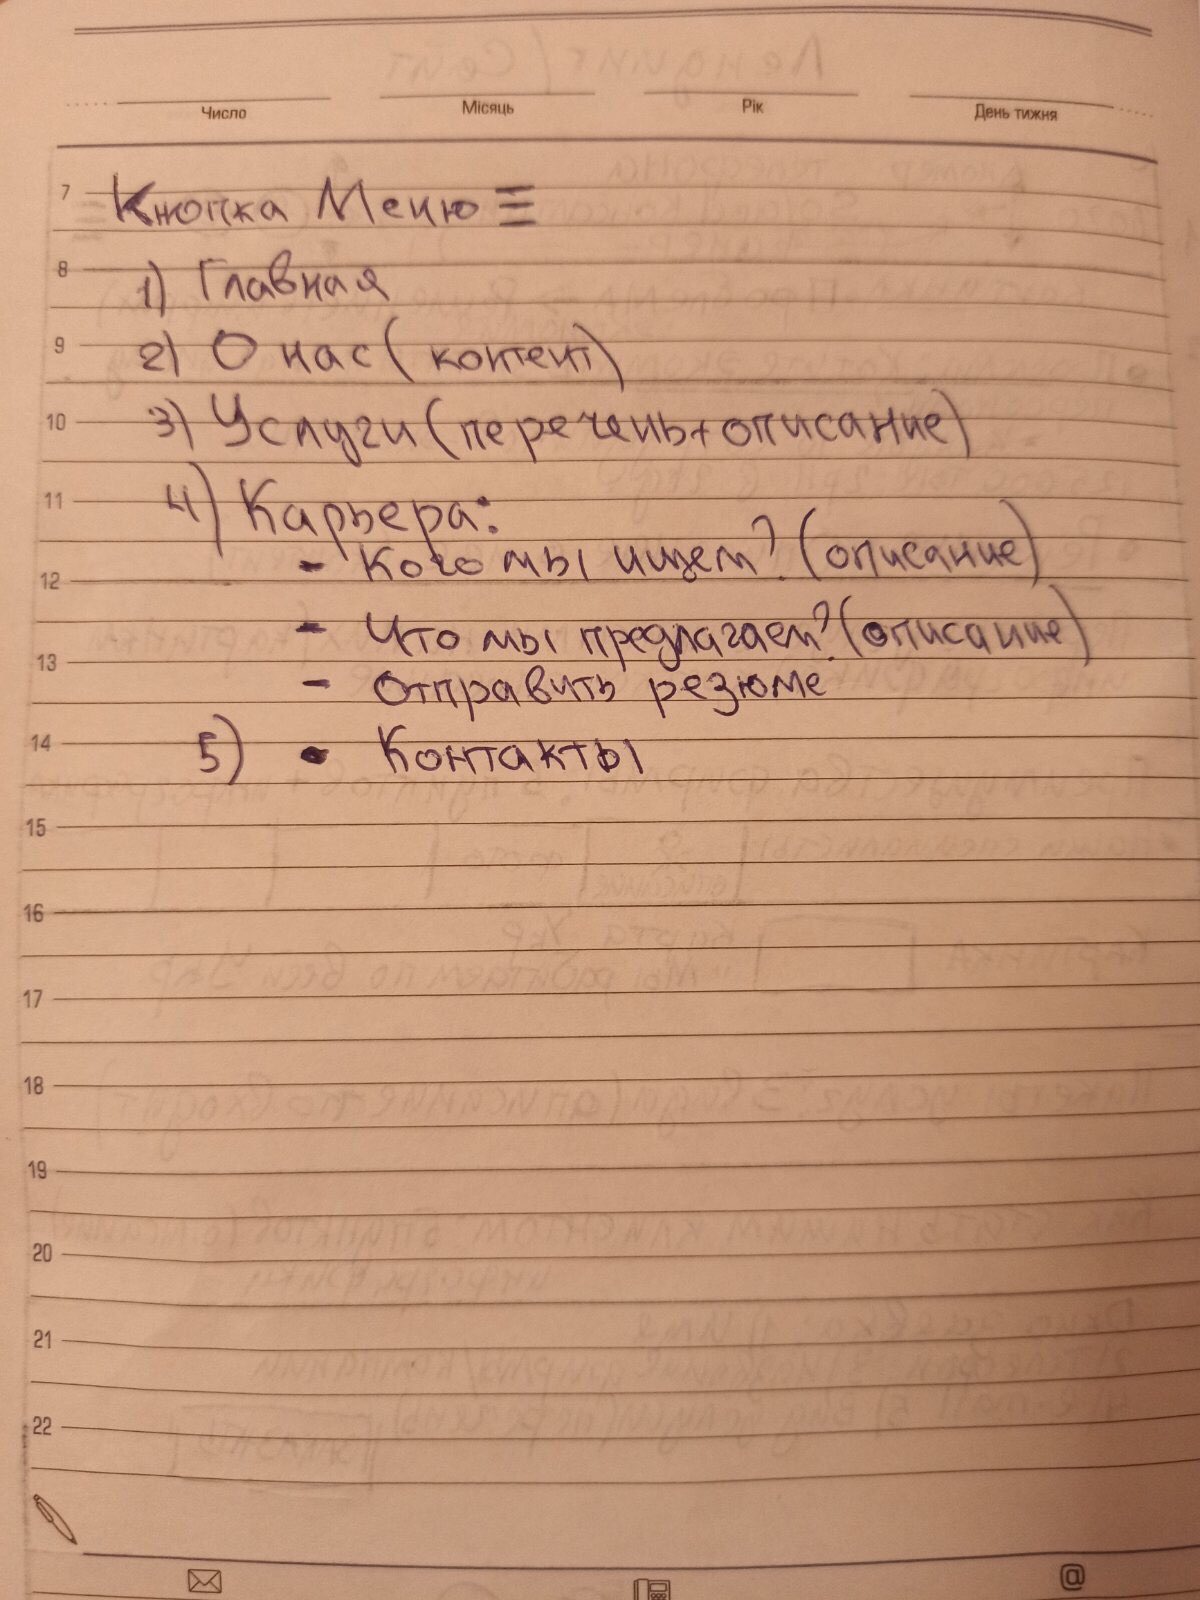 Число Місяць Рік День тижня
7 Кнопка Меню ☰
8 1) Главная
9 2) О нас (контент)
10 3) Услуги (перечень + описание)
11 4) Карьера:
- Кого мы ищем? (описание)
12
- Что мы предлагаем? (описание)
13 - Отправить резюме
14 5) • Контакты
15
16
17
18
19
20
21
22
@